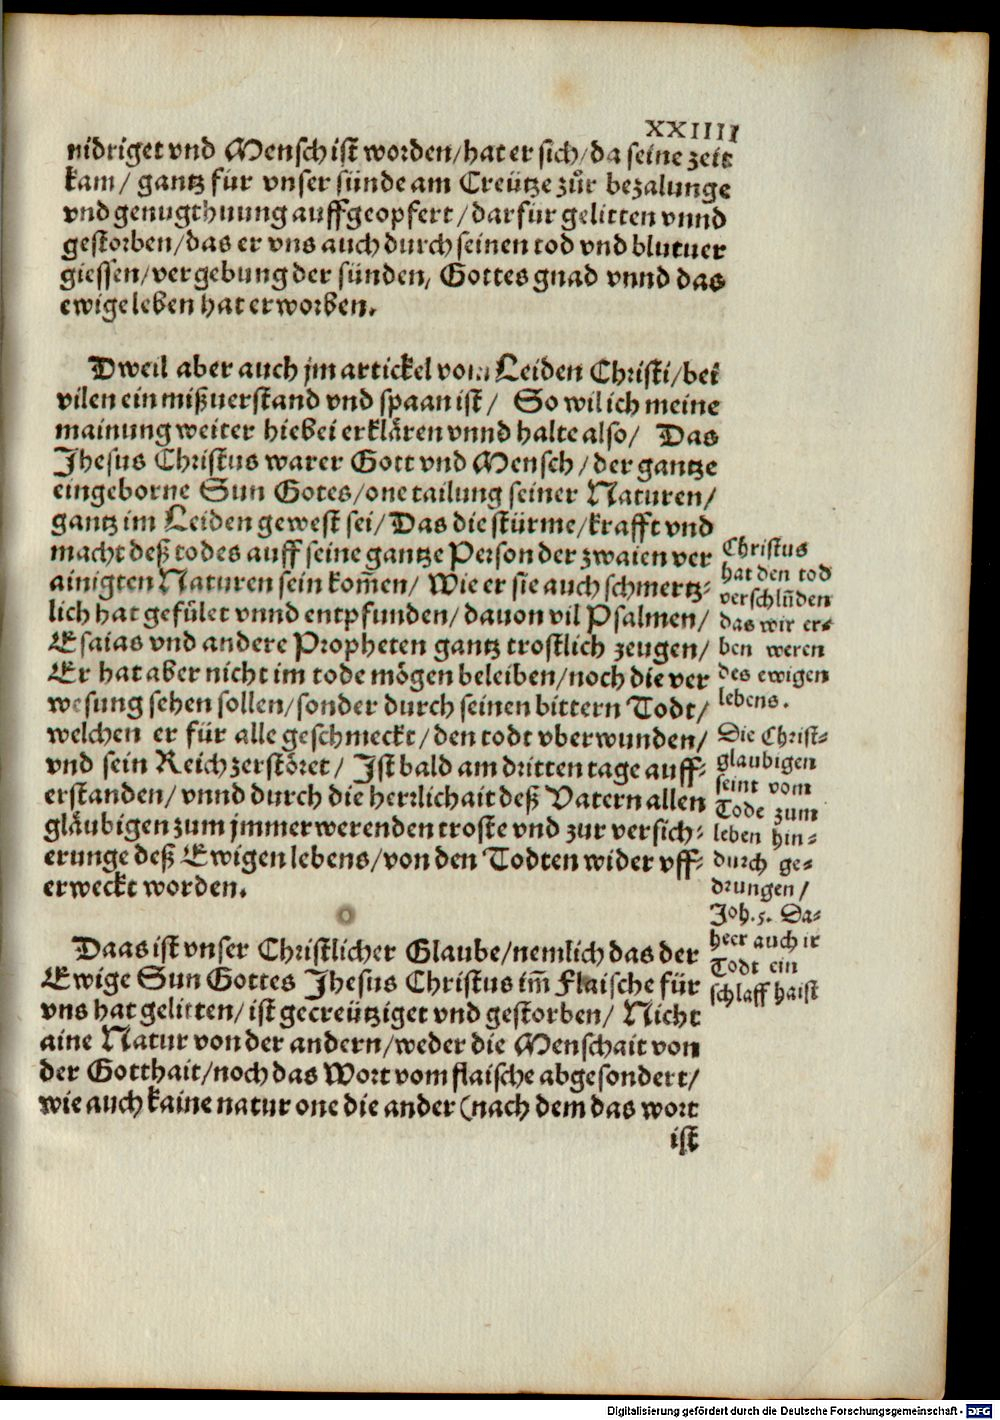 XXIIII
nidriget vnd Mensch ist worden/ hat er sich/ da seine zeit
kam/ gantz für vnser sünde am Creütze zůr bezalunge
vnd genugthuung auffgeopfert/ darfür gelitten vnnd
gestorben/ das er vns auch durch seinen tod vnd blutuer
giessen/ vergebung der sünden, Gottes gnad vnnd das
ewige leben hat erworben.
Dweil aber auch jm artickel vom Leiden Christi/ bei
vilen ein mißuerstand vnd spaan ist/ So wil ich meine
mainung weiter hiebei erklären vnnd halte also/ Das
Jhesus Christus warer Gott vnd Mensch/ der gantze
eingeborne Sun Gotes/ one tailung seiner Naturen/
gantz im Leiden gewest sei/ Das die stürme/ krafft vnd
macht deß todes auff seine gantze Person der zwaien ver
ainigten Naturen sein kom̄en/ Wie er sie auch schmertz-
lich hat gefület vnnd entpfunden/ dauon vil Psalmen/
Esaias vnd andere Propheten gantz trostlich zeugen/
Er hat aber nicht im tode mögen beleiben/ noch die ver
wesung sehen sollen/ sonder durch seinen bittern Todt/
welchen er für alle geschmeckt/ den todt vberwunden/
vnd sein Reich zerstöret/ Ist bald am dritten tage auff-
erstanden/ vnnd durch die herrlichait deß Vatern allen
gläubigen zum jmmerwerenden troste vnd zur versich-
erunge deß Ewigen lebens/ von den Todten wider vff-
erweckt worden.
Christus
hat den tod
verschlūden
das wir er-
ben weren
des ewigen
lebens.
Die Christ-
glaubigen
seint vom
Tode zum
leben hin-
durch ge-
drungen/
Joh. 5. Da-
heer auch ir
Todt ein
schlaff haist
Daas ist vnser Christlicher Glaube/ nemlich das der
Ewige Sun Gottes Jhesus Christus im̄ Flaische für
vns hat gelitten/ ist gecreütziget vnd gestorben/ Nicht
aine Natur von der andern/ weder die Menschait von
der Gotthait/ noch das Wort vom flaische abgesondert/
wie auch kaine natur one die ander (nach dem das wort
ist
Digitalisierung gefördert durch die Deutsche Forschungsgemeinschaft - DFG